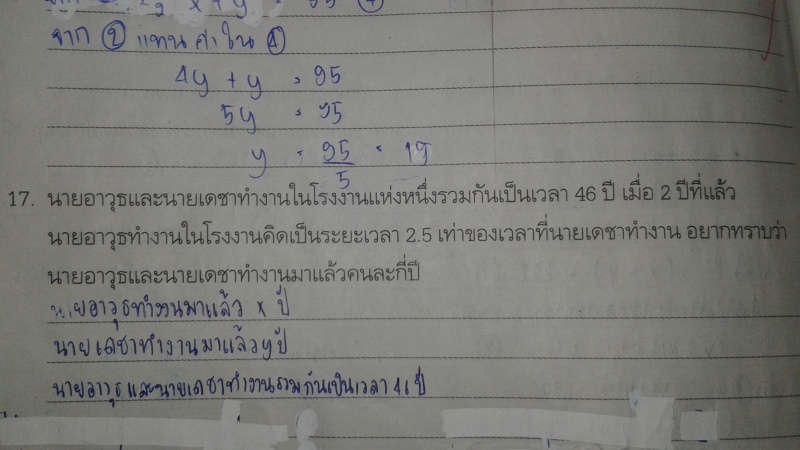 x + y 95 ④
จาก ② แทนค่าใน ④
4y + y = 95
5y = 95
y = 95/5 = 19
17. นายอาวุธและนายเดชาทำงานในโรงงานแห่งหนึ่งรวมกันเป็นเวลา 46 ปี เมื่อ 2 ปีที่แล้ว
นายอาวุธทำงานในโรงงานคิดเป็นระยะเวลา 2.5 เท่าของเวลาที่นายเดชาทำงาน อยากทราบว่า
นายอาวุธและนายเดชาทำงานมาแล้วคนละกี่ปี
นายอาวุธทำงานมาแล้ว x ปี
นายเดชาทำงานมาแล้ว y ปี
นายอาวุธและนายเดชาทำงานรวมกันเป็นเวลา 46 ปี